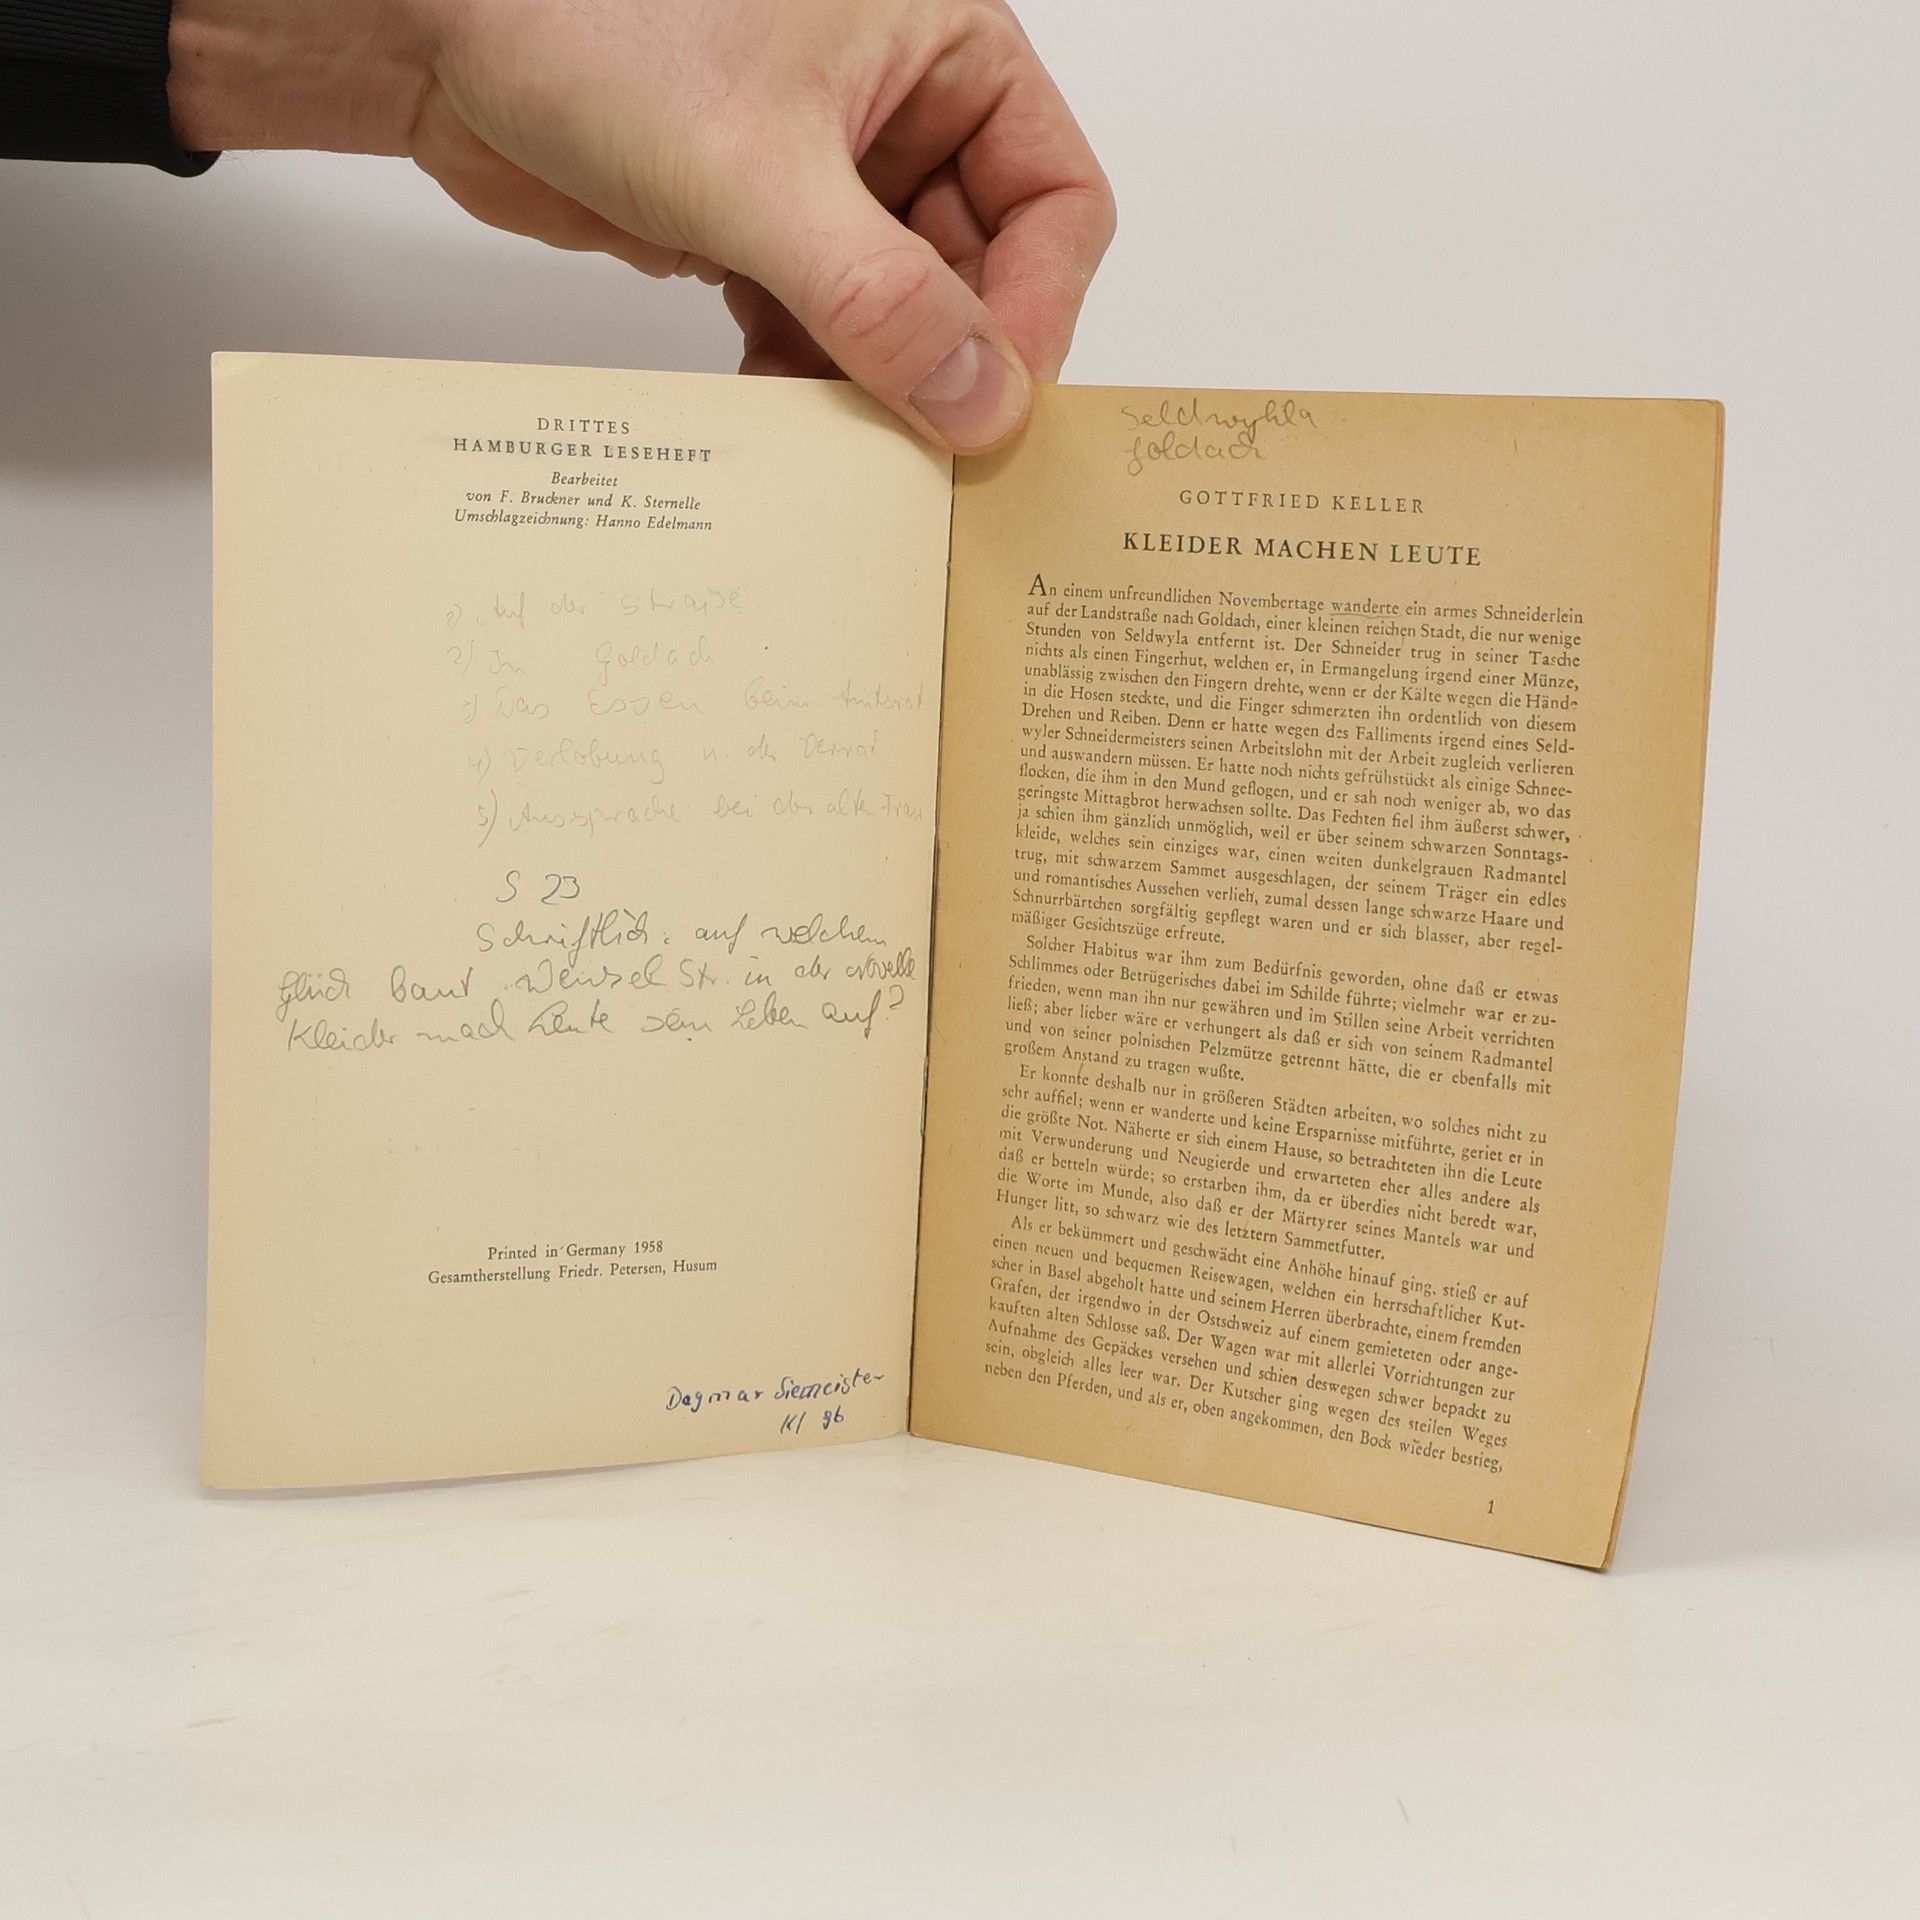 DRITTES
HAMBURGER LESEHEFT
Bearbeitet
von F. Bruckner und K. Sternelle
Umschlagzeichnung: Hanno Edelmann
1) Auf der Straße
2) In Goldach
3) Das Essen beim Amtsrat
4) Verlobung u. der Verrat
5) Aussprache bei der alten Frau
S 23
Schriftlich: auf welchem
Glück baut Wenzel Str. in der Novelle
Kleider mach Leute sein Leben auf?
Printed in Germany 1958
Gesamtherstellung Friedr. Petersen, Husum
Dagmar Siemeister
Kl 9b
Seldwyhla
Goldach
GOTTFRIED KELLER
KLEIDER MACHEN LEUTE
An einem unfreundlichen Novembertage wanderte ein armes Schneiderlein
auf der Landstraße nach Goldach, einer kleinen reichen Stadt, die nur wenige
Stunden von Seldwyla entfernt ist. Der Schneider trug in seiner Tasche
nichts als einen Fingerhut, welchen er, in Ermangelung irgend einer Münze,
unablässig zwischen den Fingern drehte, wenn er der Kälte wegen die Hände
in die Hosen steckte, und die Finger schmerzten ihn ordentlich von diesem
Drehen und Reiben. Denn er hatte wegen des Falliments irgend eines Seld-
wyler Schneidermeisters seinen Arbeitslohn mit der Arbeit zugleich verlieren
und auswandern müssen. Er hatte noch nichts gefrühstückt als einige Schnee-
flocken, die ihm in den Mund geflogen, und er sah noch weniger ab, wo das
geringste Mittagbrot herwachsen sollte. Das Fechten fiel ihm äußerst schwer,
ja schien ihm gänzlich unmöglich, weil er über seinem schwarzen Sonntags-
kleide, welches sein einziges war, einen weiten dunkelgrauen Radmantel
trug, mit schwarzem Sammet ausgeschlagen, der seinem Träger ein edles
und romantisches Aussehen verlieh, zumal dessen lange schwarze Haare und
Schnurrbärtchen sorgfältig gepflegt waren und er sich blasser, aber regel-
mäßiger Gesichtszüge erfreute.
Solcher Habitus war ihm zum Bedürfnis geworden, ohne daß er etwas
Schlimmes oder Betrügerisches dabei im Schilde führte; vielmehr war er zu-
frieden, wenn man ihn nur gewähren und im Stillen seine Arbeit verrichten
ließ; aber lieber wäre er verhungert als daß er sich von seinem Radmantel
und von seiner polnischen Pelzmütze getrennt hätte, die er ebenfalls mit
großem Anstand zu tragen wußte.
Er konnte deshalb nur in größeren Städten arbeiten, wo solches nicht zu
sehr auffiel; wenn er wanderte und keine Ersparnisse mitführte, geriet er in
die größte Not. Näherte er sich einem Hause, so betrachteten ihn die Leute
mit Verwunderung und Neugierde und erwarteten eher alles andere als
daß er betteln würde; so erstarben ihm, da er überdies nicht beredt war,
die Worte im Munde, also daß er der Märtyrer seines Mantels war und
Hunger litt, so schwarz wie des letztern Sammetfutter.
Als er bekümmert und geschwächt eine Anhöhe hinauf ging, stieß er auf
einen neuen und bequemen Reisewagen, welchen ein herrschaftlicher Kut-
scher in Basel abgeholt hatte und seinem Herren überbrachte, einem fremden
Grafen, der irgendwo in der Ostschweiz auf einem gemieteten oder ange-
kauften alten Schlosse saß. Der Wagen war mit allerlei Vorrichtungen zur
Aufnahme des Gepäckes versehen und schien deswegen schwer bepackt zu
sein, obgleich alles leer war. Der Kutscher ging wegen des steilen Weges
neben den Pferden, und als er, oben angekommen, den Bock wieder bestieg,
1